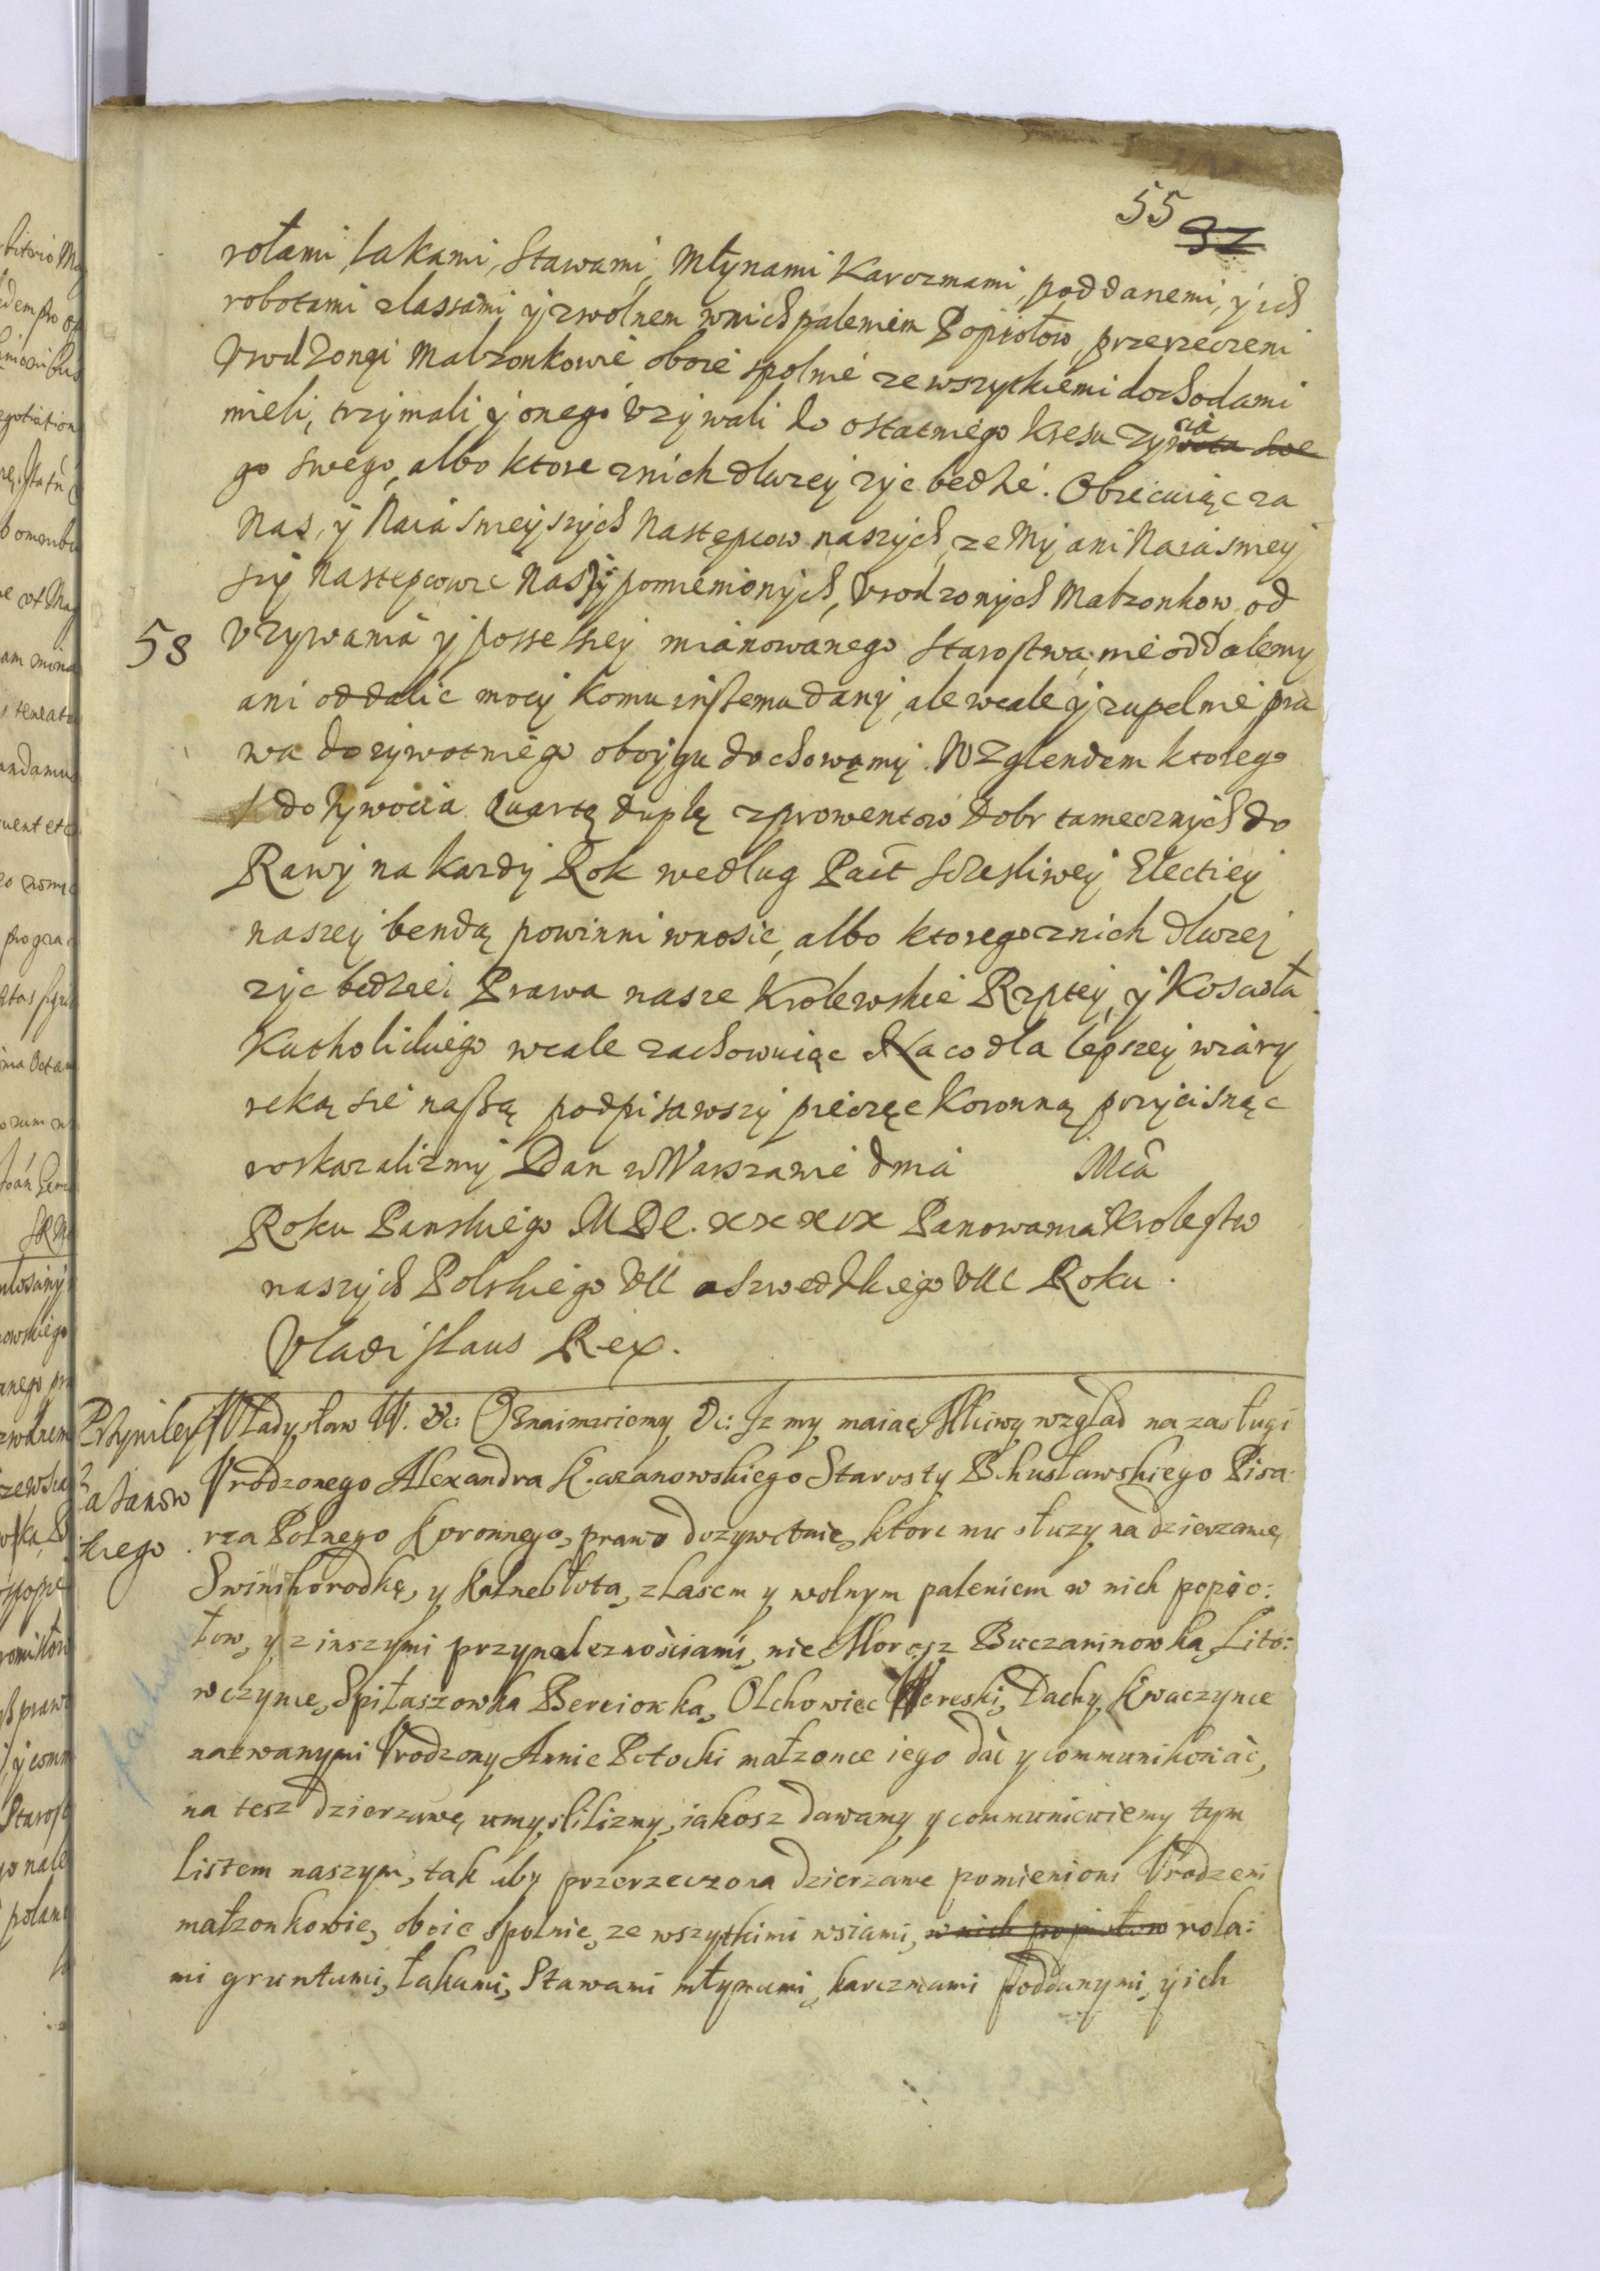 55 37
rołami łakami, Stawami, Młynami Karczmami, poddanemi, y ich
robotami zlassami y zwolnem wnich paleniem Popiołow, przerzeczeni
Vrodzongi Małzonkowie oboie spolnie ze wszytkiemi dochodami
mieli, trzymali y onego Vzywali do ostatniego kresu zy wota swe
go swego, albo ktore znich dłuzey zyc bedzie. Obiecuiąc za
Nas, y Naiasnieyszych Następcow naszych, ze My ani Naiasniey
szy Nastepcowie Naszy pomienionych, Vrodzonych Małzonkow, od
58 Vzywania y possessiey mianowanego Starostwa, nie oddalemy
ani oddalic mocy komu inszemu damy, ale wcale y zupelnie pra
wa dozywotniego oboygu dochowamy. Wzglendem ktorego
dozywocia Quartę duplę zprowentow Dobr tamecznych do
Rawy na kazdy Rok według Pact sczesliwey Electiey
naszey bendą powinni wnosic, albo ktorego znich dłuzej
zyc bedzie. Prawa nasze Krolewskie Rzptey, y Kosciła
Katholickiego wcale zachowuiąc Na co dla lepszey wiary
reką sie naszą podpisawszy pieczęc Koronną przycisnąc
roskazalizmy Dan w Warszawie dnia Mca
Roku Panskiego MDC. XXXIX Panowania Krolestw
naszych Polskiego VII a Szwedzkiego VIII Roku.
Vladislaus Rex.
Przyniley Władysław IV. &c: Oznaimuiemy &c: Iz my maiąc Mściwy wzgląd na zasługi
Vrodzonego Alexandra Kazanowskiego Starosty Bohusławskiego Pisa:
rza Polnego Koronnego, prawo dozywotnie, ktore mu słuzy na dzierzawę
kiego
Swinihorodkę, y Kalnebłota, zlasem y wolnym paleniem w nich popio:
łow, y z inszymi przynaleznościami, nie Morosz Buczaninowka, Lito:
wczynce, Spiłaszowka Berciowka, Olchowiec Wereski, Dachy, Kwaczynce
nazwanymi Vrodzony Annie Potocki małzonce iego dać y communikować,
na tesz dzierzawę umyslilizmy, iakosz dawamy y communicuiemy tym
listem naszym, tak aby przerzeczona dzierzawe pomienioni Vrodzeni
małzonkowie, oboie spolnie, ze wszytkimi wsiami, w nich popiołow rola:
mi gruntami, łakami, Stawami młynami, karczmami Poddanymi, y ich